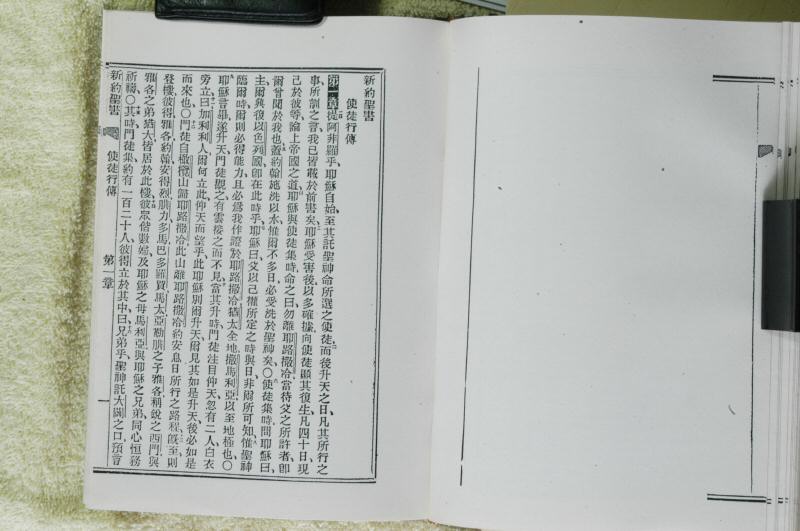 新約聖書
使徒行傳
第一章提阿非羅乎、耶穌自始、至其託聖神命所選之使徒、而後升天之日、凡其所行之
事、所訓之言、我已皆載於前書矣、耶穌受害後、以多確據、向使徒顯其復生、凡四十日、現
己於彼等、論上帝國之道、耶穌與使徒集時、命之曰、勿離耶路撒冷、當待父之所許者、卽
爾曾聞於我也、蓋約翰施洗以水、惟爾不多日、必受洗於聖神矣、〇使徒集時、問耶穌曰、
主、爾興復以色列國、卽在此時乎、耶穌曰、父以己權所定之時與日、非爾所可知、惟聖神
臨爾時、爾則必得能力、且必爲我作證、於耶路撒冷、猶太全地、撒馬利亞、以至地極也、〇
耶穌言畢、遂升天、門徒觀之、有雲接之而不見、當其升時、門徒注目仰天、忽有二人白衣
旁立、曰、加利利人、爾何立此仰天而望乎、此耶穌別爾升天、爾見其如是升天、後必如是
而來也、〇門徒自橄欖山歸耶路撒冷、此山離耶路撒冷、約安息日所行之路程、旣至、則
登樓、彼得、雅各、約翰、安得烈、腓力、多馬、巴多羅買、馬太、亞勒腓之子雅各、稱銳之西門、與
雅各之弟猶大、皆居於此樓、彼眾偕數婦、及耶穌之母馬利亞、與耶穌之兄弟、同心恒務
祈禱、〇其時門徒集、約有一百二十人、彼得立於其中曰、兄弟乎、聖神託大闢之口、預言
新約聖書
使徒行傳
第一章
一